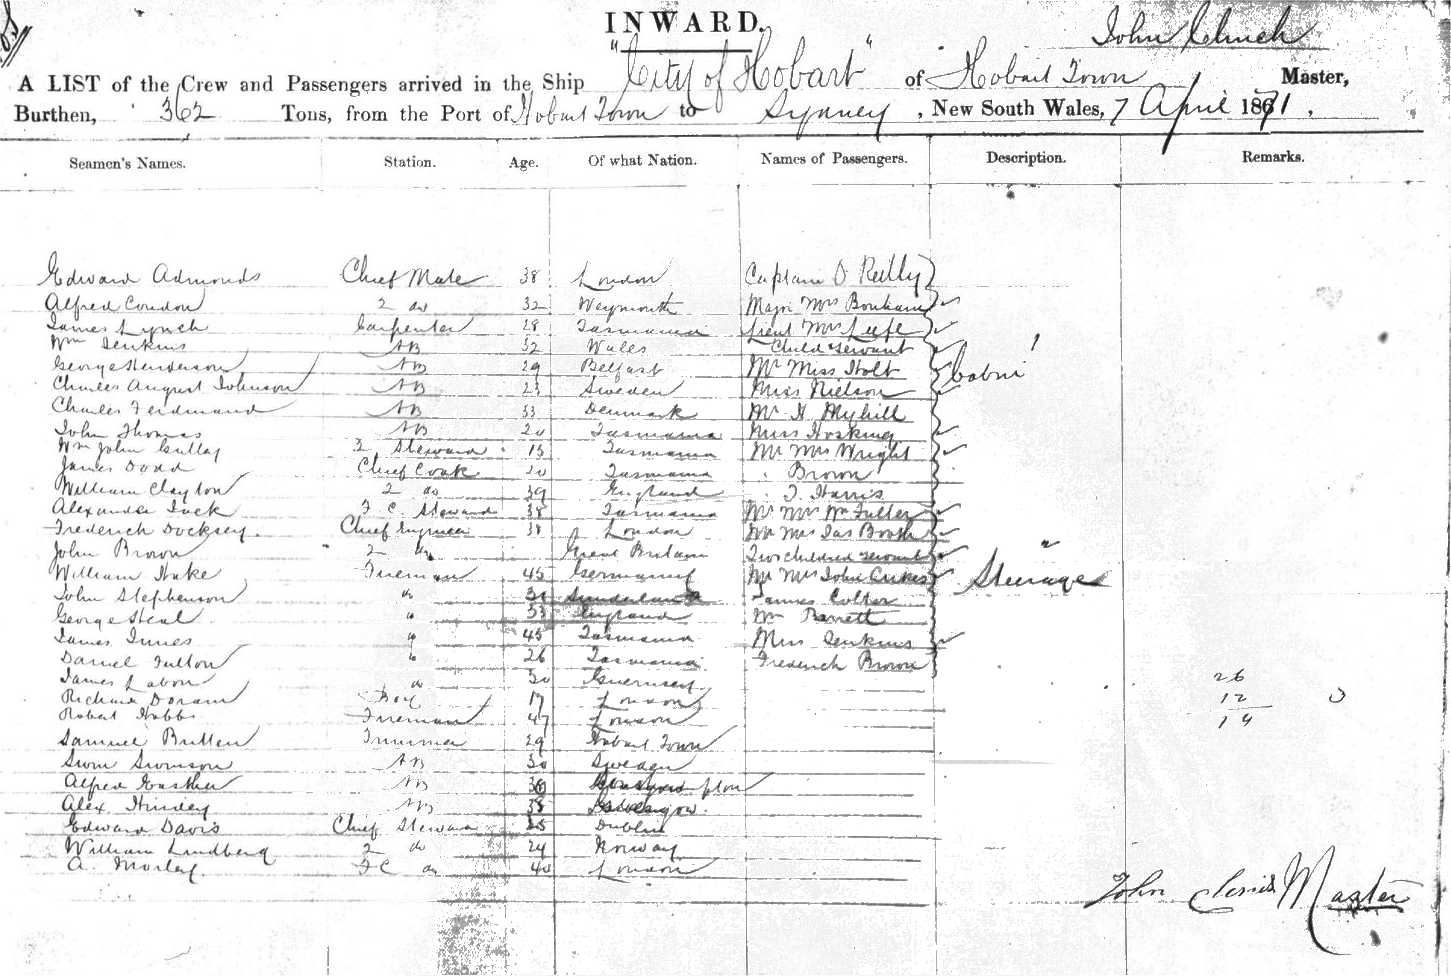 INWARD.
John Clinch
A LIST of the Crew and Passengers arrived in the Ship "City of Hobart" of Hobart Town Master,
Burthen, 362 Tons, from the Port of Hobart Town to Sydney, New South Wales, 7 April 1871.
Seamen's Names. Station. Age. Of what Nation. Names of Passengers. Description. Remarks.
Edward Admonds Chief Mate 38 London Captain O Reilly
Alfred Condon 2 do 32 Weymouth Major Mrs Bonham
James Lynch Carpenter 28 Tasmania Lieut Mrs
Wm Jenkins AB 32 Wales Child & servant
George Henderson AB 29 Belfast Mr Miss Holt Cabin
Charles August Johnson AB 23 Sweden Miss Nielson
Charles Ferdinand AB 33 Denmark Mr H Myhill
John Thomas AB 20 Tasmania Miss Hosking
Wm John 2 Steward 15 Tasmania Mr Mrs Wright
James Dodd Chief Cook 20 Tasmania " Brown
William Clayton 2 do 39 England " T. Harris
Alexander F C Steward 38 Tasmania Mr Mrs Wm Fuller
Frederick Docksey. Chief Engineer 38 London Mr Mrs Jas Booth
John Brown 2 do Great Britain Two children servant
William Hake Fireman 45 Germany Mr Mrs John Steerage
John Stephenson " Sunderland James Colter
George Heal " 33 England Wm Barrett
James Innes " 45 Tasmania Mrs Jenkins
Daniel Fulton " 26 Tasmania Frederick Brown
James Labon " 30 Guernsey
Richard Doram Boy 17 London
Robert Hobbs Fireman 47 London
Samuel Britten Trimmer 29 Hobart Town
Swen Swenson AB 30 Sweden
Alfred AB
Alex AB 38 Glasgow.
Edward Davis Chief Steward 25 Dublin
William Lindberg 2 do 24 Norway
A. Morley. F C do 40 London
26
12
14
John Clinch Master